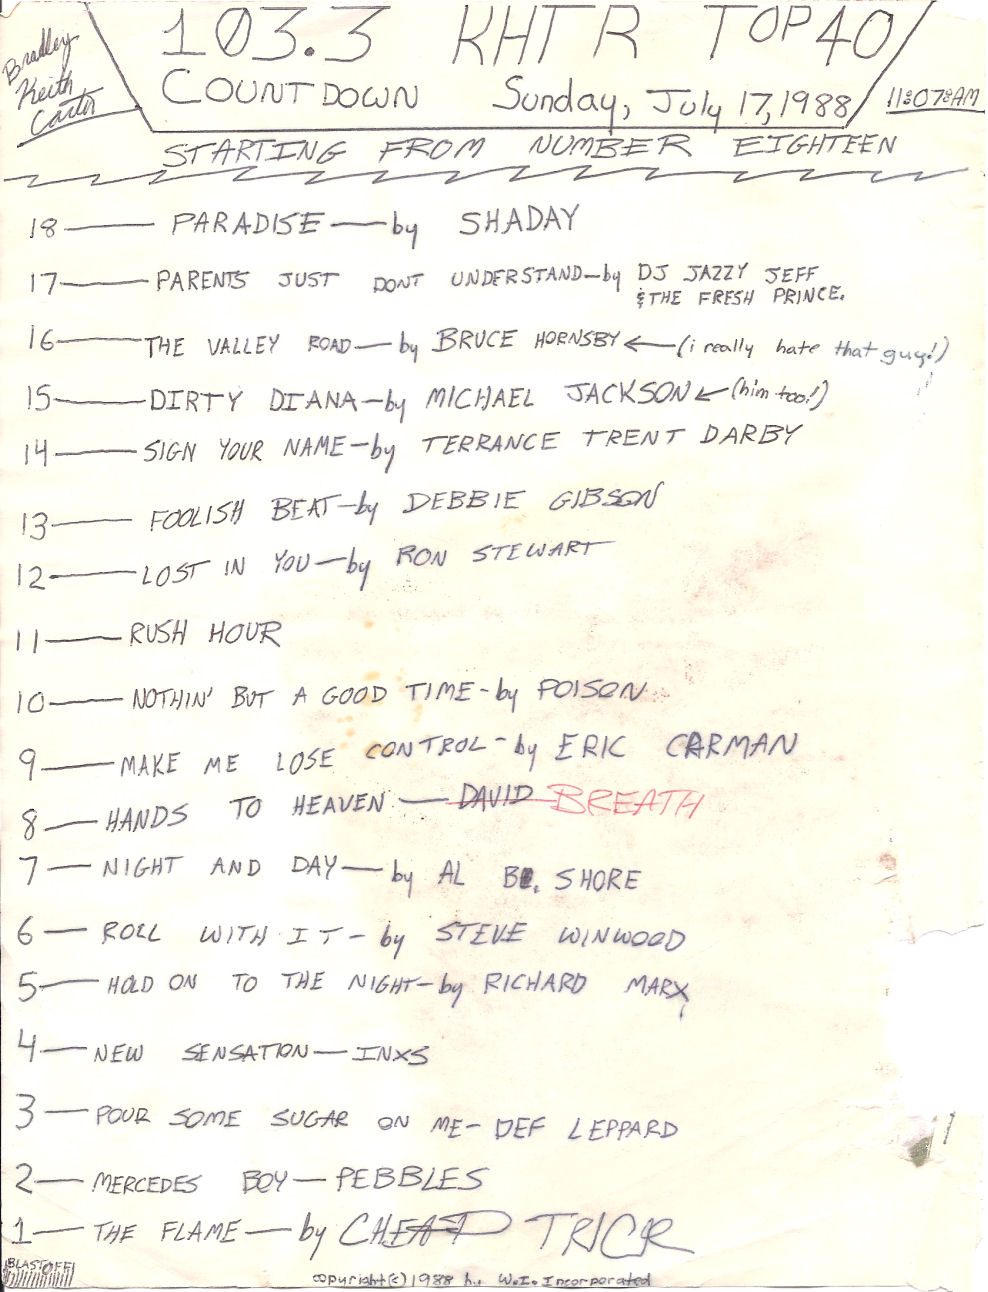 Bradley
Keith
Carter
103.3 KHTR TOP 40
COUNTDOWN Sunday, July 17, 1988
11:07:AM
STARTING FROM NUMBER EIGHTEEN
18 — PARADISE — by SHADAY
17 — PARENTS JUST DONT UNDERSTAND — by DJ JAZZY JEFF
& THE FRESH PRINCE.
16 — THE VALLEY ROAD — by BRUCE HORNSBY ← (i really hate that guy!)
15 — DIRTY DIANA — by MICHAEL JACKSON ← (him too!)
14 — SIGN YOUR NAME — by TERRANCE TRENT DARBY
13 — FOOLISH BEAT — by DEBBIE GIBSON
12 — LOST IN YOU — by RON STEWART
11 — RUSH HOUR
10 — NOTHIN' BUT A GOOD TIME - by POISON
9 — MAKE ME LOSE CONTROL - by ERIC CARMAN
8 — HANDS TO HEAVEN — DAVID BREATH
7 — NIGHT AND DAY — by AL B. SHORE
6 — ROLL WITH IT - by STEVE WINWOOD
5 — HOLD ON TO THE NIGHT - by RICHARD MARX
4 — NEW SENSATION — INXS
3 — POUR SOME SUGAR ON ME - DEF LEPPARD
2 — MERCEDES BOY — PEBBLES
1 — THE FLAME — by CHEAP TRICK
BLAST OFF
copyright (c) 1988 W.I. Incorporated